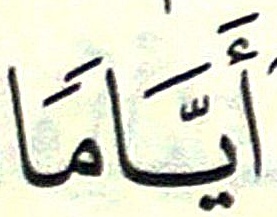 أَيَّامَا